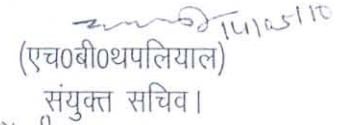 14/05/10
(एच0बी0थपलियाल)
संयुक्त सचिव।